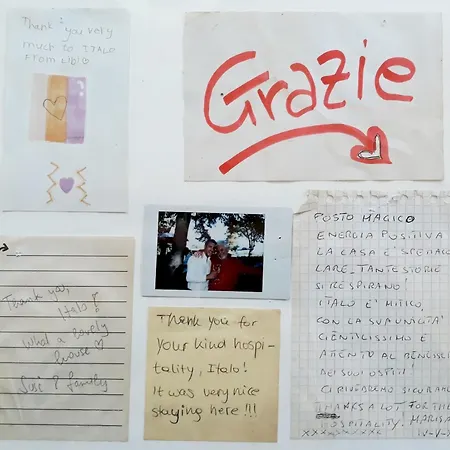 Thank you very
much to ITALO
FROM
Grazie
Thank you,
Italo!
What a lovely
house
Susi & family
Thank you for
your kind hospi-
tality, Italo!
It was very nice
staying here !!!
POSTO MAGICO
ENERGIA POSITIVA
LA CASA E' SPETTACO
LARE. TANTE STORIE
SI RESPIRANO!
ITALO E' MITICO,
CON LA SUA UMILTA'
GENTILISSIMO E
ATTENTO AL BENESSE
DEI SUOI OSPITI!
CI RIVEDREMO SICURAME
THANKS A LOT FOR THE
HOSPITALITY. MARISA